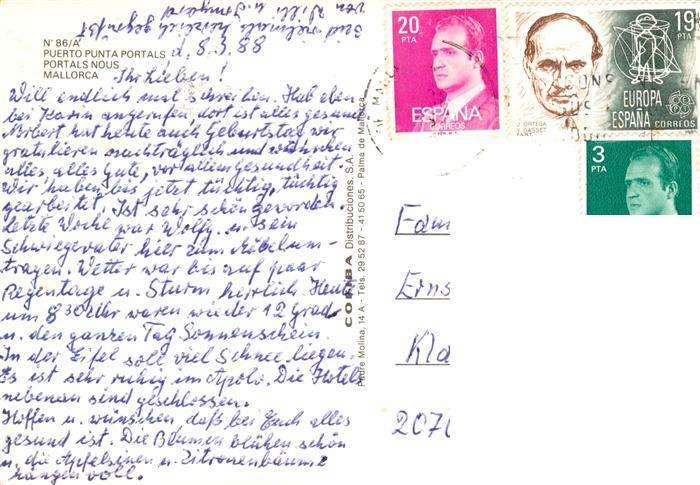 Nº 86/A
PUERTO PUNTA PORTALS
PORTALS NOUS
MALLORCA
d. 8.3.88
Ihr Lieben!
Will endlich mal schreiben. Hab eben
bei Karin angerufen, dort ist alles gesund
Norbert hat heute auch Geburtstag, wir
gratulieren nachträglich und wünschen
alles alles Gute, vor allem Gesundheit.
Wir haben bis jetzt tüchtig, tüchtig
gearbeitet, Ist sehr schön geworden.
letzte Woche war Wolfg. u. sein
Schwiegervater hier zum Möbelum-
tragen. Wetter war bis auf paar
Regentage u. Sturm herrlich. Heute
um 8 30 Uhr waren wieder 12 Grad
u. den ganzen Tag Sonnenschein.
In der Eifel soll viel Schnee liegen.
Es ist sehr ruhig im Apolo. Die Hotels
nebenan sind geschlossen.
Hoffen u. wünschen, daß bei Euch alles
gesund ist. Die Blumen blühen schön
u. die Apfelsinen u. Zitronenbäume
hängen voll.
Seid nochmals herzlich gegrüßt
von Willi u.
CORIBA Distribuciones, S.A.
Padre Molina, 14 A - Tels. 29 52 87 - 41 50 65 - Palma de Mallorca
20
PTA
ESPAÑA
CORREOS
J. ORTEGA
Y GASSET
19
PTA
EUROPA
ESPAÑA
CORREOS
3
PTA
Fam
Erns
Kla
2070